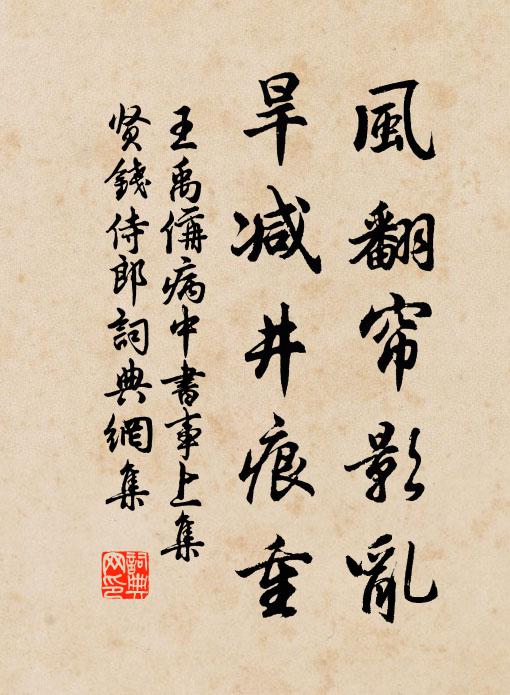 風翻帘影亂
旱減井痕重
王禹偁病中書事上集
贤錢侍郎詞典網集
詞典
网印